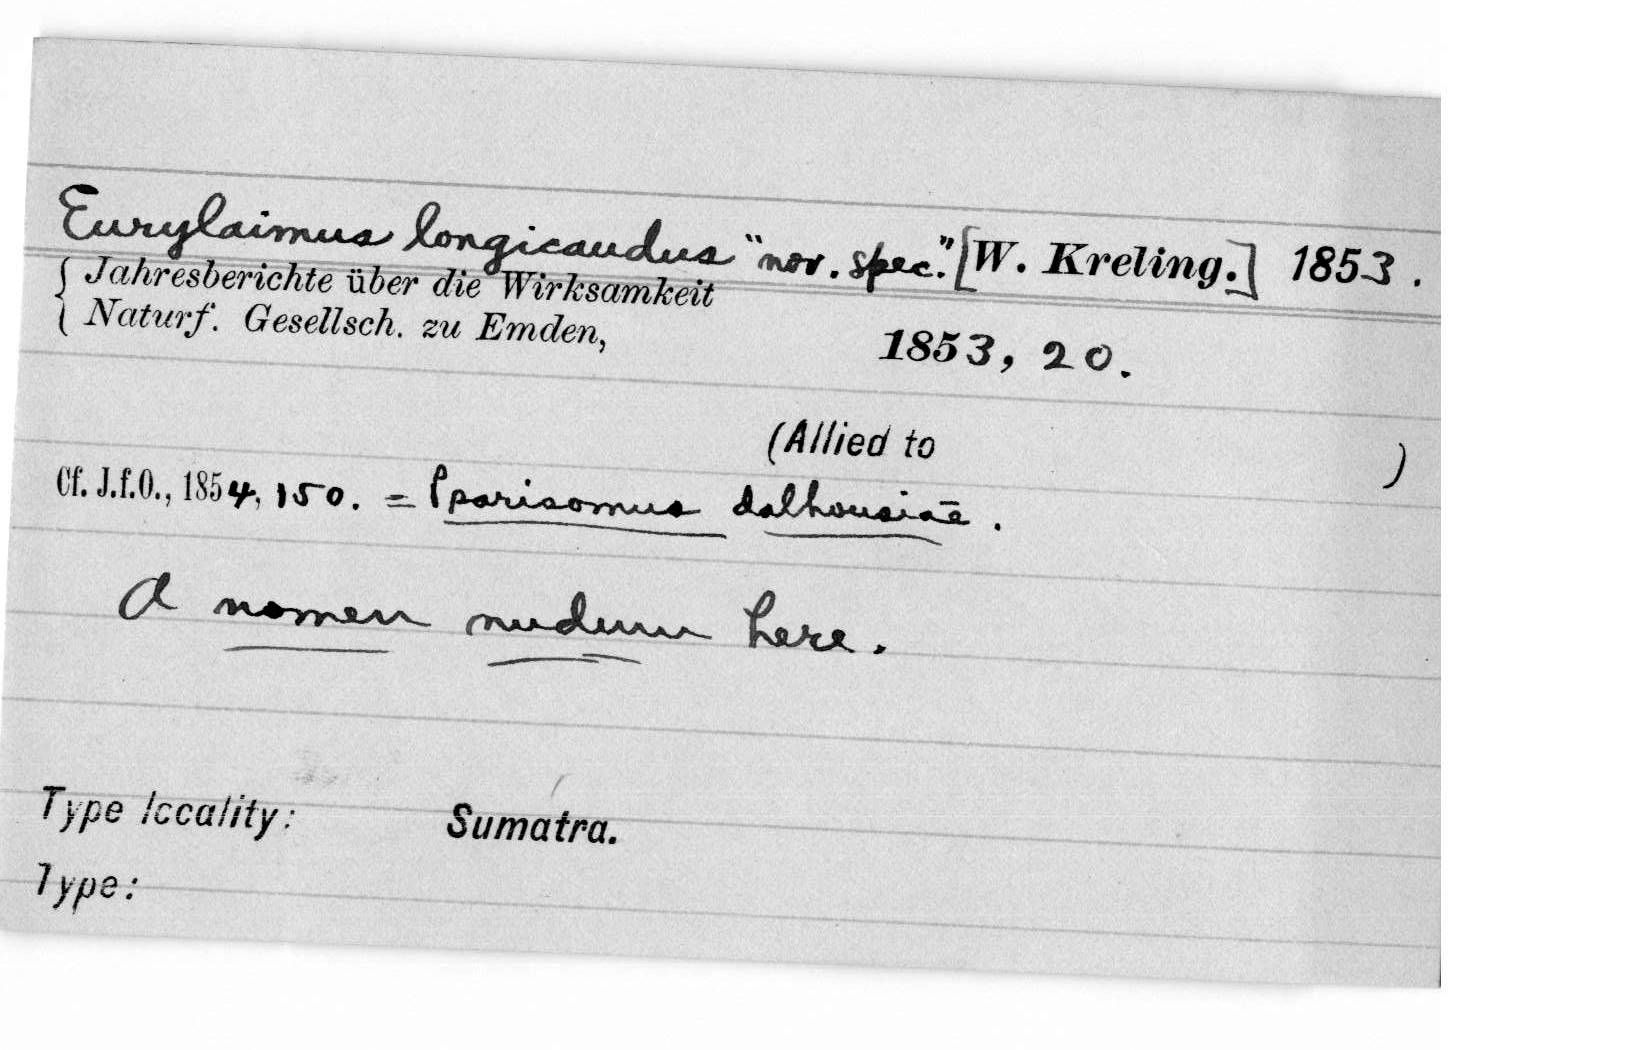 Eurylaimus longicaudus "nov. spec." [W. Kreling.] 1853.
{ Jahresberichte über die Wirksamkeit
{ Naturf. Gesellsch. zu Emden, 1853, 20.
(Allied to )
Cf. J.f.O., 1854, 150. = Psarisomus dalhousiae.
A nomen nudum here.
Type locality: Sumatra.
Type: